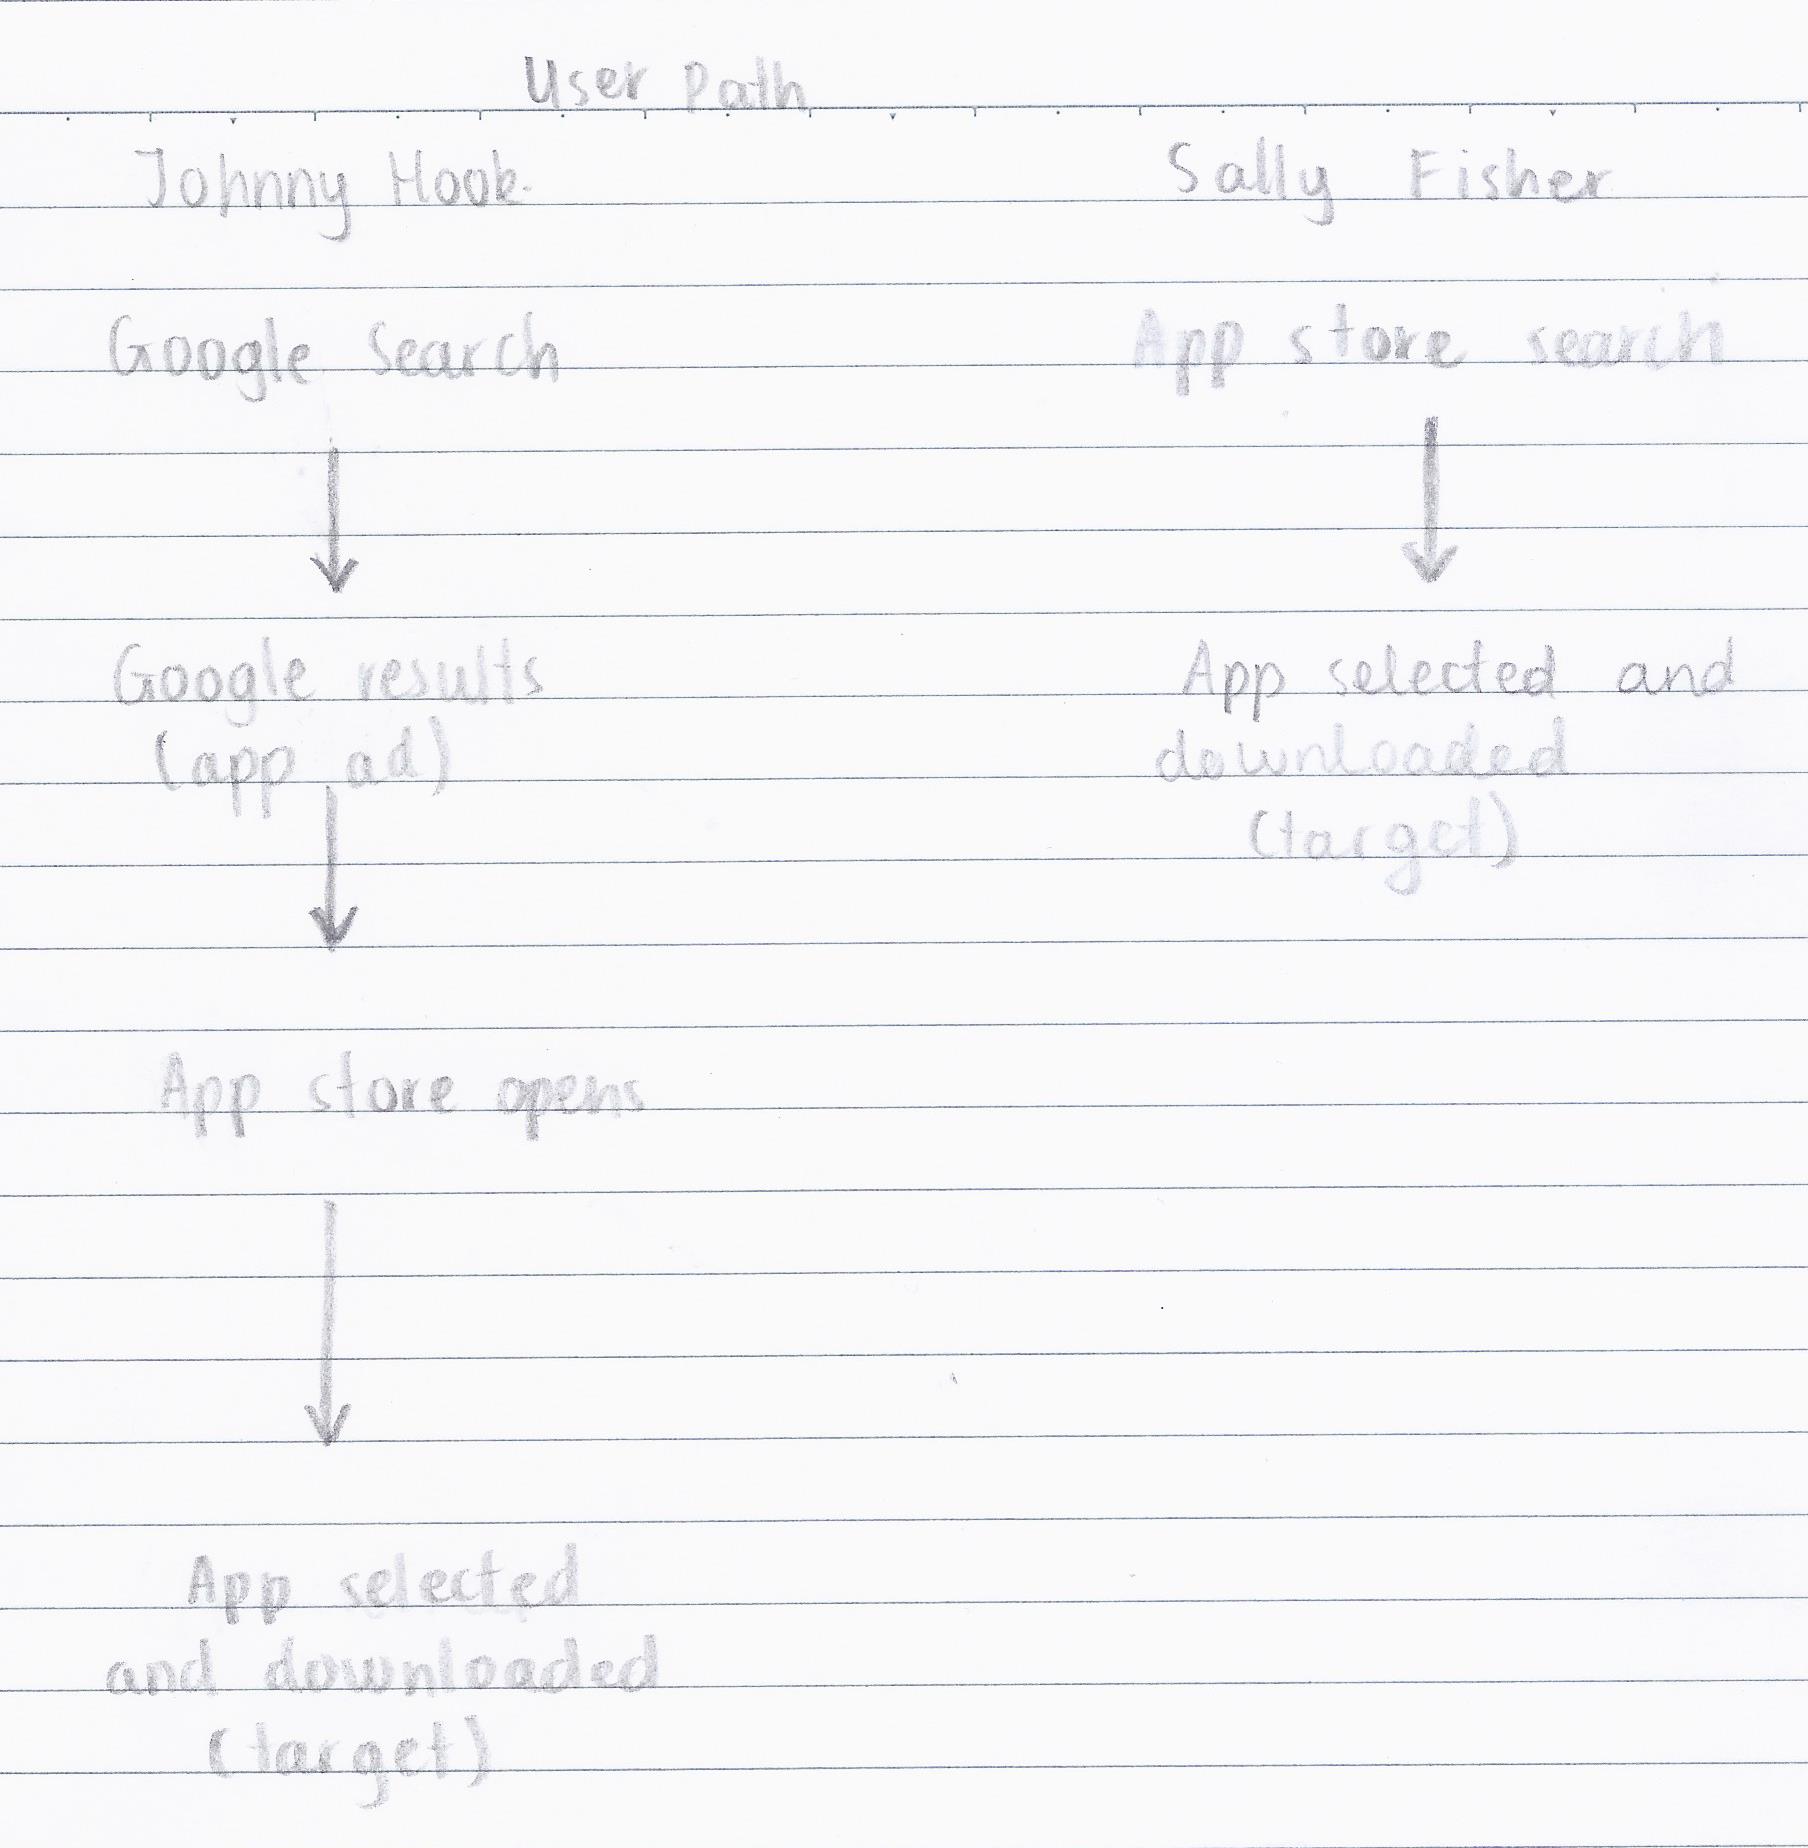 User Path
Johnny Hook
Sally Fisher
Google Search
App store search
Google results
(app ad)
App selected and
downloaded
(target)
App store opens
App selected
and downloaded
(target)